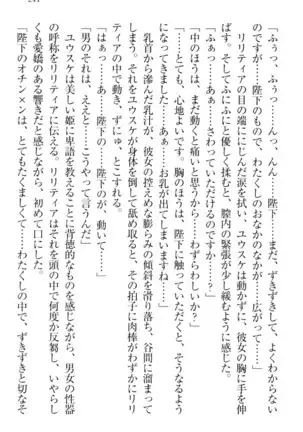 「ふぅっ、ふぅっ……んっ、んん……陛下……まだ、ずきずきして、よくわからない
のですが……陛下のもので、わたくしのおなかのなかが……広がって……」
リリティアの目の端ににじんだ涙を拭い、ユウスケは動かずに、彼女の胸に手を伸
ばす。そしてふにふにと優しく揉むと、膣内の緊張が少し緩むように感じた。
「はぁっ……あ……さわっていただけるのですか……？」
「中のほうは、まだ動くと痛いと思うから……わずらわしいかな？」
「……とても、心地よいです。胸のほうは、陛下に触っていただくと、そうなるよう
になってきました……あぁ……お乳が出てしまいますね……」
乳首から滲んだ乳汁が、彼女の控えめな膨らみの傾斜を滑り落ち、谷間に溜まって
しまう。それをユウスケが身体を倒して舐め取ると、その拍子に肉棒がわずかにリリ
ティアの中で動き、ずにゅ、とこすれる。
「はぁっ……あっ……陛下……陛下のが、動いて……」
「男のそれは、ええと……こうやって言うんだ」
ユウスケは美しい姫に卑語を教えることに背徳的なものを感じながら、男女の性器
の呼称をリリティアに伝える。リリティアはそれを頭の中で何度か反芻し、いやらし
くも愛嬌のある響きだと感じながら、初めて口にした。
「陛下のオチン×ンは、とてもたくましくて……わたくしの中で、ずきずきと切なそ